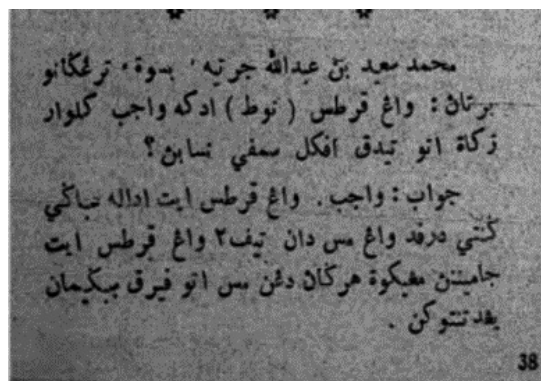 * * *
محمد سعيد بن عبدالله جرتيه ، بسوة ، ترڠڬانو
برتاڽ : واڠ قرطس ( نوط ) ادكه واجب كلوار
زكاة اتو تيدق افكل سمفي نصابڽ ؟
جواب : واجب . واڠ قرطس ايت اداله سباڬي
ڬنتي درفد واڠ مس دان تيف٢ واڠ قرطس ايت
جامينن مڠيكوة هرڬاڽ دڠن مس اتو فيرق سبڬيمان
يڠ دتنتوكن .
38